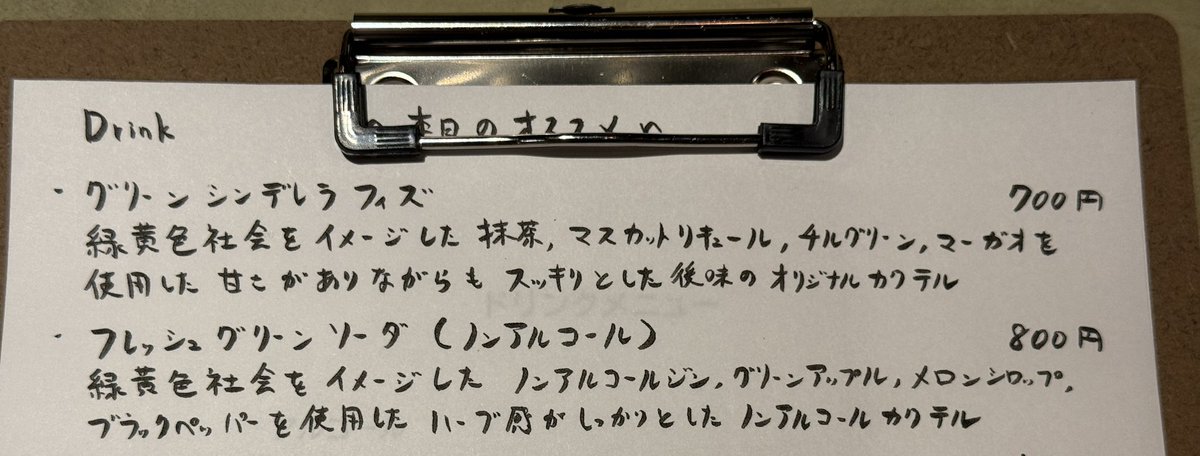 Drink
本日のオススメ
・グリーンシンデレラフィズ 700円
緑黄色社会をイメージした抹茶,マスカットリキュール,チルグリーン,マーガオを
使用した甘さがありながらもスッキリとした後味のオリジナルカクテル
ドリンクメニュー
・フレッシュグリーンソーダ(ノンアルコール) 800円
緑黄色社会をイメージしたノンアルコールジン,グリーンアップル,メロンシロップ,
ブラックペッパーを使用したハーブ感がしっかりとしたノンアルコールカクテル